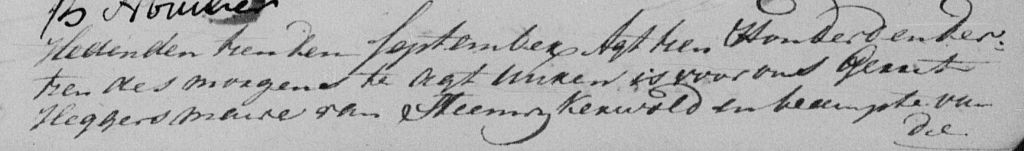 Hedenden tienden September Agttien Honderd en der-
tien des morgens te agt uuren is voor ons Gerrit
Heggers maire van Steenwykerwold en beampte van
die